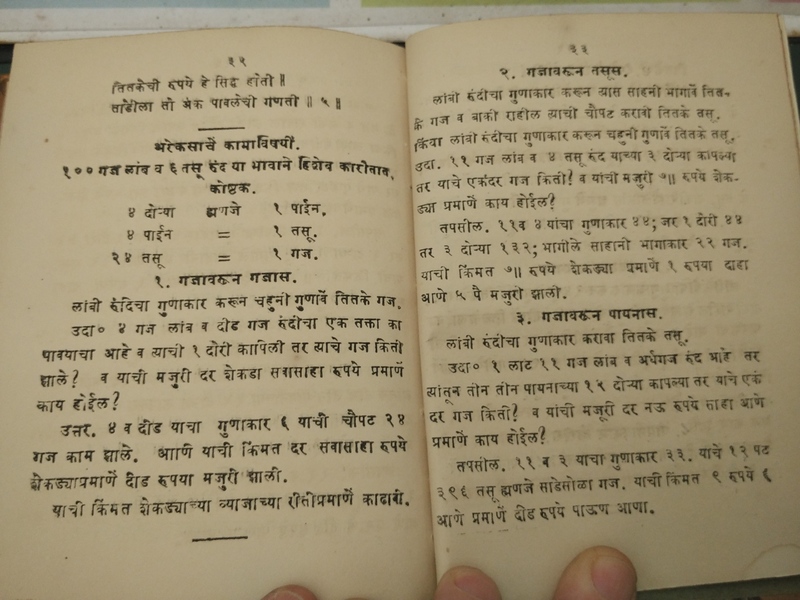 ३२
तितकेची रुपये हे सिद्ध होती ॥
साडीला तो अंक पावलेची गणती ॥ ५ ॥
अरेकसाचें कामाविषयीं.
१०० गज लांब व ६ तसू रुंद या भावाने हिशेब कारीतात,
कोष्टक.
४ दोऱ्या ह्मणजे १ पाईन,
४ पाईन = १ तसू.
२४ तसू = १ गज.
१. गजावरून गजास.
लांबी रुंदिचा गुणाकार करून चहुनी गुणावें तितके गज.
उदा० ४ गज लांब व दीड गज रुंदीचा एक तक्ता का
पावयाचा आहे व त्याची १ दोरी कापिली तर त्याचे गज किती
झाले? व याची मजुरी दर शेकडा सवासाहा रुपये प्रमाणें
काय होईल?
उत्तर. ४ व दीड याचा गुणाकार ६ याची चौपट २४
गज काम झाले. आाणि याची किंमत दर सवासाहा रुपये
शेकड्याप्रमाणें दीड रुपया मजुरी झाली.
याची किंमत शेकड्याच्या व्याजाच्या रीतीप्रमाणें काढावी.
३३
२. गजावरून तसूस.
लांबी रुंदीचा गुणाकार करून त्यास साहानी भागावें तित-
के गज व बाकी राहील त्याची चौपट करावी तितके तसू.
किंवा लांबी रुंदीचा गुणाकार करून चहुनी गुणावें तितके तसू.
उदा. ११ गज लांब व ४ तसू रुंद याच्या ३ दोऱ्या कापल्या
तर याचे एकंदर गज किती? व यांची मजुरी ७॥ रुपये शेक-
ड्या प्रमाणें काय होईल?
तपसील. ११व ४ यांचा गुणाकार ४४; जर १ दोरी ४४
तर ३ दोऱ्या १३२; भागीले साहानी भागाकार २२ गज.
याची किंमत ७॥ रुपये शेकड्या प्रमाणें १ रुपया दाहा
आणे ५ पै मजुरी झाली.
३. गजावरून पायनास.
लांबी रुंदीचा गुणाकार करावा तितके तसू.
उदा० १ लाट ११ गज लांब व अर्धगज रुंद आहे तर
त्यांतून तीन तीन पायनाच्या १५ दोऱ्या कापल्या तर याचे एकं
दर गज किती? व यांची मजूरी दर नऊ रुपये साहा आणे
प्रमाणें काय होईल?
तपसील. ११ व ३ याचा गुणाकार ३३. याचे १२ पट
३९६ तसू ह्मणजे साडेसोळा गज. याची किंमत ९ रुपये ६
आणे प्रमाणें दीड रुपये पाऊण आणा.